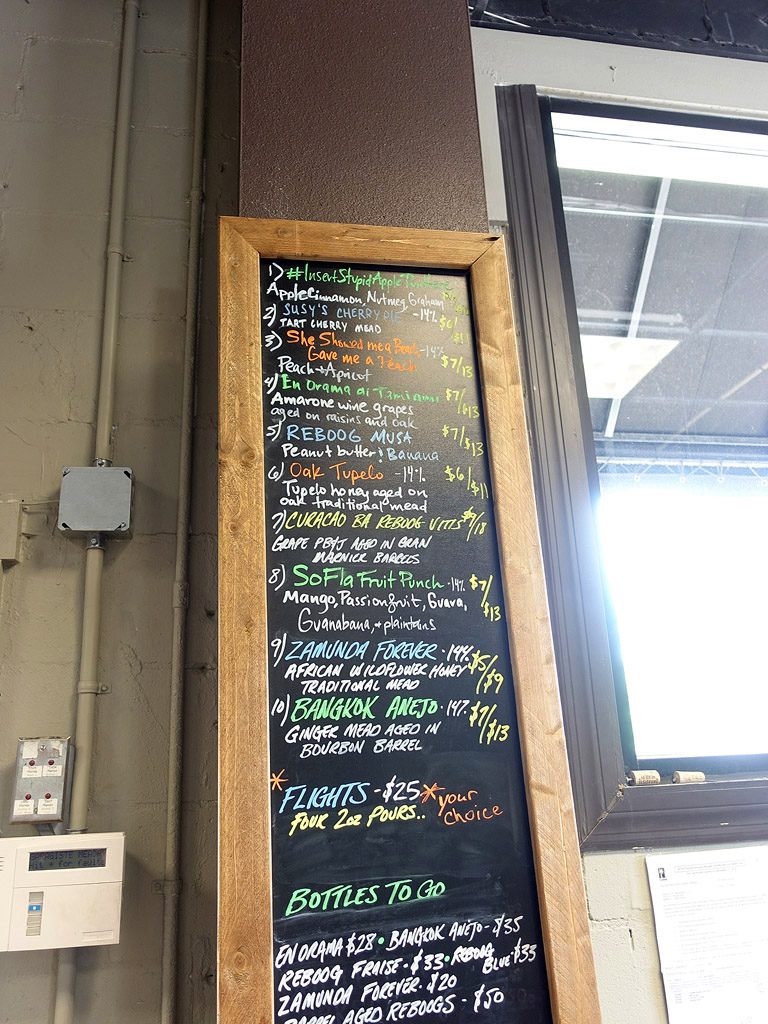 1) #InsertStupidApple
Apple Cinnamon, Nutmeg, Graham
2) SUSY'S CHERRY PIE -14% $6/
TART CHERRY MEAD $11
3) She Showed me a -14%
Gave me a Peach $7/13
Peach + Apricot
4) En Orama di Tamiami $7/
Amarone wine grapes $13
aged on raisins and oak
5) REBOOG MUSA $7/
Peanut butter! Banana $13
6) Oak Tupelo -14% $6/
Tupelo honey aged on $11
oak traditional mead
7) CURACAO BA REBOOG VITIS $9/18
GRAPE PB+J AGED IN GRAN
MARNIER BARRELS
8) SoFla Fruit Punch -14% $7/
Mango, Passionfruit, Guava, $13
Guanabana, + plaintains
9) ZAMUNDA FOREVER - 14% $5/
AFRICAN WILDFLOWER HONEY $9
TRADITIONAL MEAD
10) BANGKOK ANEJO - 14% $7/
GINGER MEAD AGED IN $13
BOURBON BARREL
*FLIGHTS - $25 * your
FOUR 2oz POURS.. Choice
BOTTLES TO GO
EN ORAMA $28 • BANGKOK ANEJO - $35
REBOOG FRAISE - $33 • REBOOG BLUE $33
ZAMUNDA FOREVER - $20
BARREL AGED REBOOGS - $50